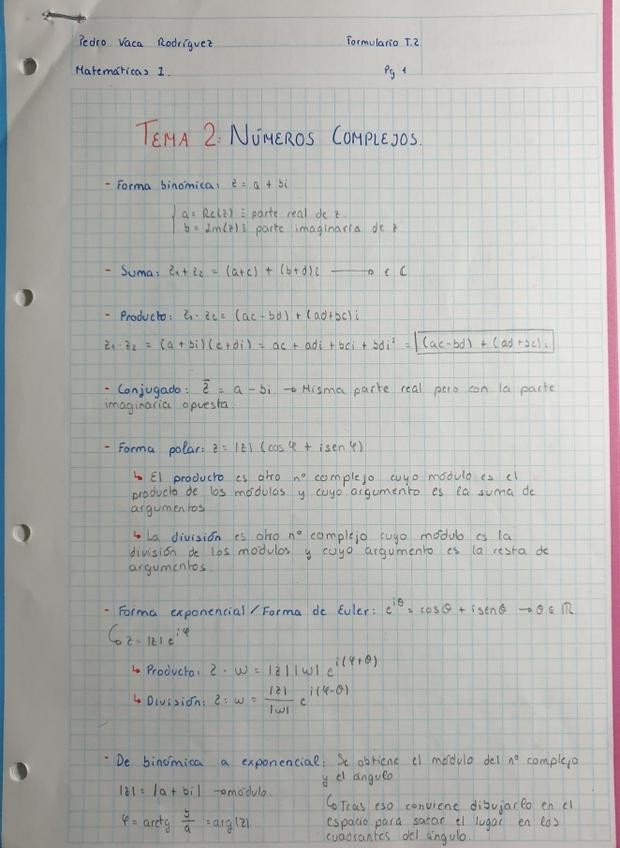 Pedro Vaca Rodríguez Formulario T.2
Matemáticas I. Pg 1
TEMA 2: NÚMEROS COMPLEJOS.
- Forma binómica: z = a + bi
a = Re(z) ≡ parte real de z
b = Im(z) ≡ parte imaginaria de z
- Suma: z₁ + z₂ = (a+c) + (b+d)i → ∈ C
- Producto: z₁ · z₂ = (ac - bd) + (ad+bc)i
z₁ · z₂ = (a + bi)(c + di) = ac + adi + bci + bdi² = (ac-bd) + (ad+bc)i
- Conjugado: z̅ = a - bi → Misma parte real pero con la parte
imaginaria opuesta.
- Forma polar: z = |z| (cos φ + i sen φ)
↳ El producto es otro nº complejo cuyo módulo es el
producto de los módulos y cuyo argumento es la suma de
argumentos
↳ La división es otro nº complejo cuyo módulo es la
división de los módulos y cuyo argumento es la resta de
argumentos.
- Forma exponencial / Forma de Euler: e^{iθ} = cos θ + i sen θ → θ ∈ ℝ
↳ z = |z| e^{iφ}
↳ Producto: z · w = |z| |w| e^{i(φ+θ)}
↳ División: z : w = |z|/|w| e^{i(φ-θ)}
- De binómica a exponencial: Se obtiene el módulo del nº complejo
y el ángulo
|z| = |a + bi| → módulo.
φ = arctg b/a = arg(z).
↳ Tras eso conviene dibujarlo en el
espacio para sacar el lugar en los
cuadrantes del ángulo.